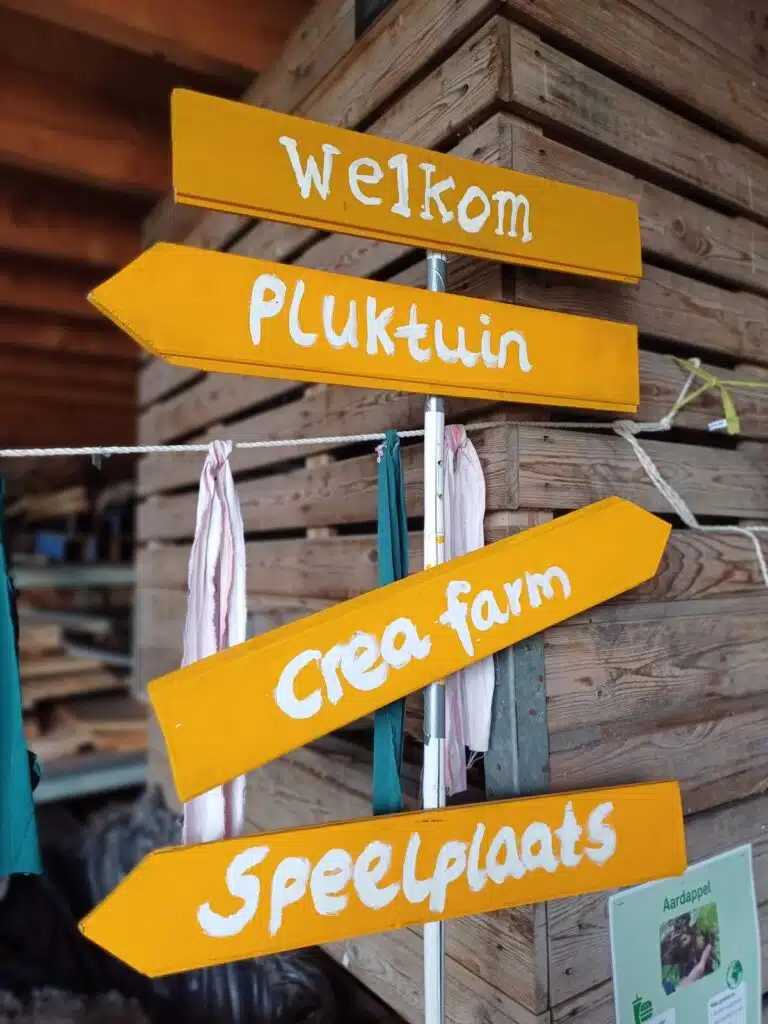 Welkom
Pluktuin
Crea farm
Speelplaats
Aardappel